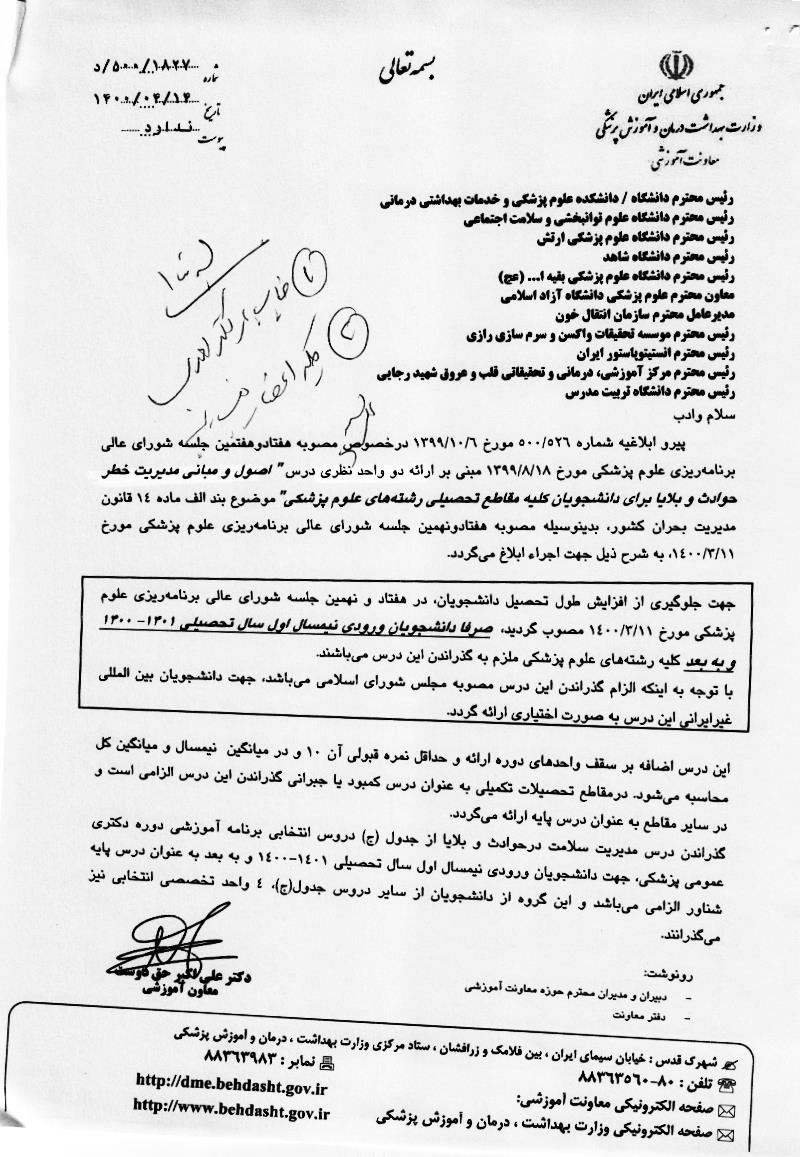 بسمه تعالی
جمهوری اسلامی ایران
وزارت بهداشت درمان و آموزش پزشکی
معاونت آموزشی
شماره ۵۰۰/۱۸۲۷/د
تاریخ ۱۴۰۰/۰۴/۱۴
پیوست ندارد
رئیس محترم دانشگاه / دانشکده علوم پزشکی و خدمات بهداشتی درمانی
رئیس محترم دانشگاه علوم توانبخشی و سلامت اجتماعی
رئیس محترم دانشگاه علوم پزشکی ارتش
رئیس محترم دانشگاه شاهد
رئیس محترم دانشگاه علوم پزشکی بقیه ا... (عج)
معاون محترم علوم پزشکی دانشگاه آزاد اسلامی
مدیرعامل محترم سازمان انتقال خون
رئیس محترم موسسه تحقیقات واکسن و سرم سازی رازی
رئیس محترم انستیتوپاستور ایران
رئیس محترم مرکز آموزشی، درمانی و تحقیقاتی قلب و عروق شهید رجایی
رئیس محترم دانشگاه تربیت مدرس
سلام وادب
پیرو ابلاغیه شماره ۵۰۰/۵۲۶ مورخ ۱۳۹۹/۱۰/۶ درخصوص مصوبه هفتادوهفتمین جلسه شورای عالی
برنامه‌ریزی علوم پزشکی مورخ ۱۳۹۹/۸/۱۸ مبنی بر ارائه دو واحد نظری درس " اصول و مبانی مدیریت خطر
حوادث و بلایا برای دانشجویان کلیه مقاطع تحصیلی رشته‌های علوم پزشکی" موضوع بند الف ماده ۱٤ قانون
مدیریت بحران کشور، بدینوسیله مصوبه هفتادونهمین جلسه شورای عالی برنامه‌ریزی علوم پزشکی مورخ
۱٤۰۰/۳/۱۱، به شرح ذیل جهت اجراء ابلاغ می‌گردد.
جهت جلوگیری از افزایش طول تحصیل دانشجویان، در هفتاد و نهمین جلسه شورای عالی برنامه‌ریزی علوم
پزشکی مورخ ۱٤۰۰/۳/۱۱ مصوب گردید، صرفا دانشجویان ورودی نیمسال اول سال تحصیلی ۱٤۰۱- ۱٤۰۰
و به بعد کلیه رشته‌های علوم پزشکی ملزم به گذراندن این درس می‌باشند.
با توجه به اینکه الزام گذراندن این درس مصوبه مجلس شورای اسلامی می‌باشد، جهت دانشجویان بین المللی
غیرایرانی این درس به صورت اختیاری ارائه گردد.
این درس اضافه بر سقف واحدهای دوره ارائه و حداقل نمره قبولی آن ۱۰ و در میانگین نیمسال و میانگین کل
محاسبه می‌شود. درمقاطع تحصیلات تکمیلی به عنوان درس کمبود یا جبرانی گذراندن این درس الزامی است و
در سایر مقاطع به عنوان درس پایه ارائه می‌گردد.
گذراندن درس مدیریت سلامت درحوادث و بلایا از جدول (ج) دروس انتخابی برنامه آموزشی دوره دکتری
عمومی پزشکی، جهت دانشجویان ورودی نیمسال اول سال تحصیلی ۱٤۰۱-۱٤۰۰ و به بعد به عنوان درس پایه
شناور الزامی می‌باشد و این گروه از دانشجویان از سایر دروس جدول(ج)، ٤ واحد تخصصی انتخابی نیز
می‌گذرانند.
دکتر علی اکبر حق دوست
معاون آموزشی
رونوشت:
- دبیران و مدیران محترم حوزه معاونت آموزشی
- دفتر معاونت
شهرک قدس : خیابان سیمای ایران ، بین فلامک و زرافشان ، ستاد مرکزی وزارت بهداشت ، درمان و آموزش پزشکی
تلفن : ۸۰-۸۸۳۶۳۵۶۰ نمابر : ۸۸۳۶۳۹۸۳
صفحه الکترونیکی معاونت آموزشی: http://dme.behdasht.gov.ir
صفحه الکترونیکی وزارت بهداشت ، درمان و آموزش پزشکی http://www.behdasht.gov.ir